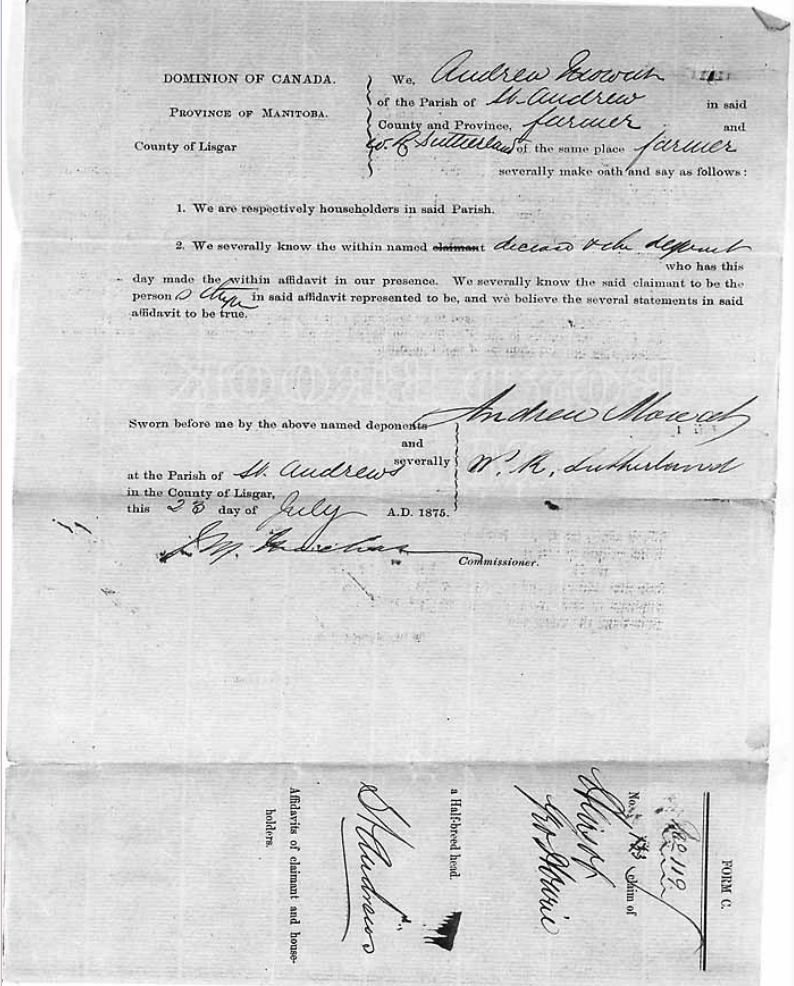 DOMINION OF CANADA.
PROVINCE OF MANITOBA.
County of Lisgar
We, Andrew Mowat
of the Parish of St. Andrew in said
County and Province, farmer and
W. R. Sutherland of the same place farmer
severally make oath and say as follows:
1. We are respectively householders in said Parish.
2. We severally know the within named claimant deceased & the deponent
who has this
day made the within affidavit in our presence. We severally know the said claimant to be the
person s they in said affidavit represented to be, and we believe the several statements in said
affidavit to be true.
Sworn before me by the above named deponents
and
severally
at the Parish of St. Andrews
in the County of Lisgar,
this 23 day of July A.D. 1875.
Andrew Mowat
W. R. Sutherland
Commissioner.
FORM C.
No. claim of
Heirs of
Geo Howrie
a Half-breed head.
St. Andrews
Affidavits of claimant and house-
holders.